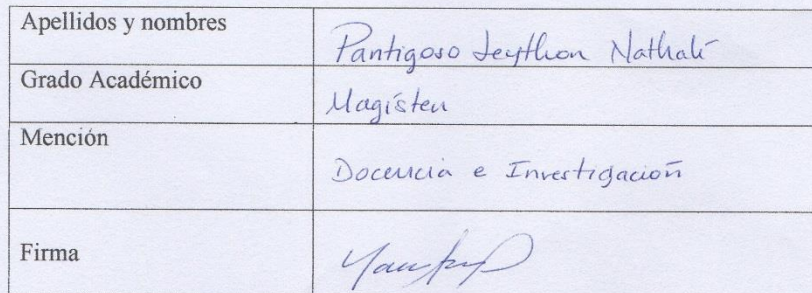 Apellidos y nombres
Pantigoso Leython Nathalí
Grado Académico
Magíster
Mención
Docencia e Investigación
Firma